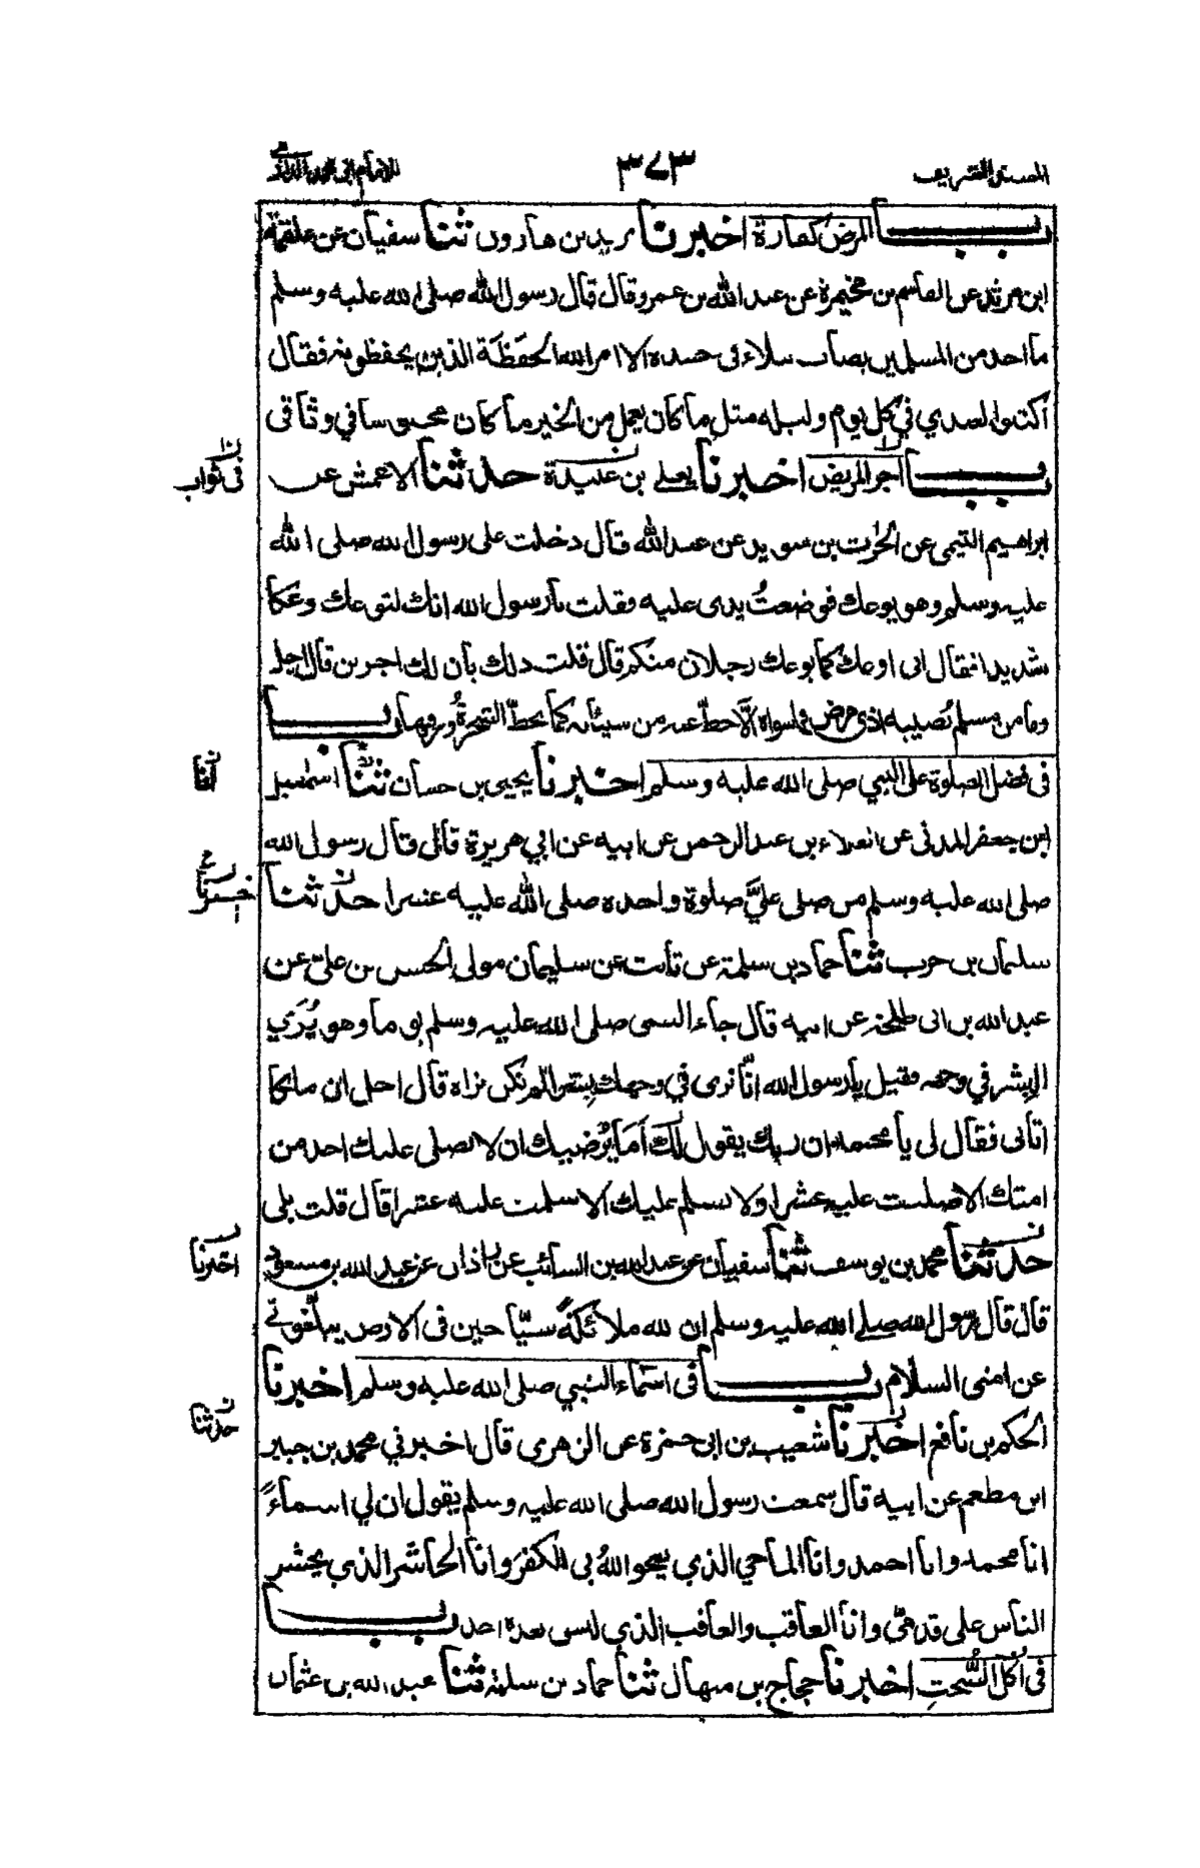 المسند الشريف ٣٧٣ للامام ابی محمد الدارمی
باب المرض كفارة اخبرنا يزيد بن هارون ثنا سفيان عن علقمة
ابن مرثد عن القاسم بن مخيمرة عن عبد الله بن عمرو قال قال رسول الله صلى الله عليه وسلم
ما احد من المسلمين يصاب ببلاء فی جسده الا امر الله الحفظة الذين يحفظونه فقال
اكتبوا لعبدي في كل يوم وليلة مثل ما كان يعمل من الخير ما كان محبوسا في وثاقی
باب اجر المريض اخبرنا يعلى بن عبيدة حدثنا الاعمش عن
فی ثواب
ابراهيم التيمی عن الحرث بن سويد عن عبد الله قال دخلت على رسول الله صلى الله
عليه وسلم وهو يوعك فوضعت يدی عليه فقلت يا رسول الله انك لتوعك وعكا
شديدا فقال انی اوعك كما يوعك رجلان منكم قال قلت ذلك بان لك اجرين قال اجل
وما من مسلم تصيبه اذی مرض فما سواه الا حط عنه من سيئاته كما تحط الشجرة ورقها باب
فی فضل الصلوة على النبي صلى الله عليه وسلم اخبرنا يحيى بن حسان ثنا اسمعيل
انا
ابن جعفر المدنی عن العلاء بن عبد الرحمن عن ابيه عن ابي هريرة قال قال رسول الله
صلى الله عليه وسلم من صلى عليَّ صلوة واحدة صلى الله عليه عشرا حدثنا
اخبرنا
سليمان بن حرب ثنا حماد بن سلمة عن ثابت عن سليمان مولى الحسن بن علیّ عن
عبد الله بن ابی طلحة عن ابيه قال جاء النبی صلى الله عليه وسلم يوما وهو يُرَي
البشر في وجهه فقيل يا رسول الله انّا نری في وجهك بشرا لم نكن نراه قال اجل ان ملكا
اتانی فقال لی يا محمد ان ربك يقول لك اَمَا يُرْضيك ان لا يصلی عليك احد من
امتك الا صليت عليه عشرا ولا يسلم عليك الا سلمت عليه عشرا قال قلت بلی
حدثنا محمد بن يوسف ثنا سفيان عن عبد الله بن السائب عن زاذان عن عبد الله بن مسعود
اخبرنا
قال قال رسول الله صلى الله عليه وسلم ان لله ملائكةً سيّاحين فی الارض يبلغونے
عن امتی السلام باب فی اسماء النبي صلى الله عليه وسلم اخبرنا
الحكم بن نافع اخبرنا شعيب بن ابی حمزة عن الزهری قال اخبرني محمد بن جبير
حدثنا
ابن مطعم عن ابيه قال سمعت رسول الله صلى الله عليه وسلم يقول ان لي اسماءً
انا محمد وانا احمد وانا الماحي الذي يمحو اللهُ بی الكفرَ وانا الحاشر الذي يحشر
الناس على قدمیّ وانا العاقب والعاقب الذي ليس بعده احد باب
فی اكل السُّحتِ اخبرنا حجاج بن منهال ثنا حماد بن سلمة ثنا عبد الله بن عثمان